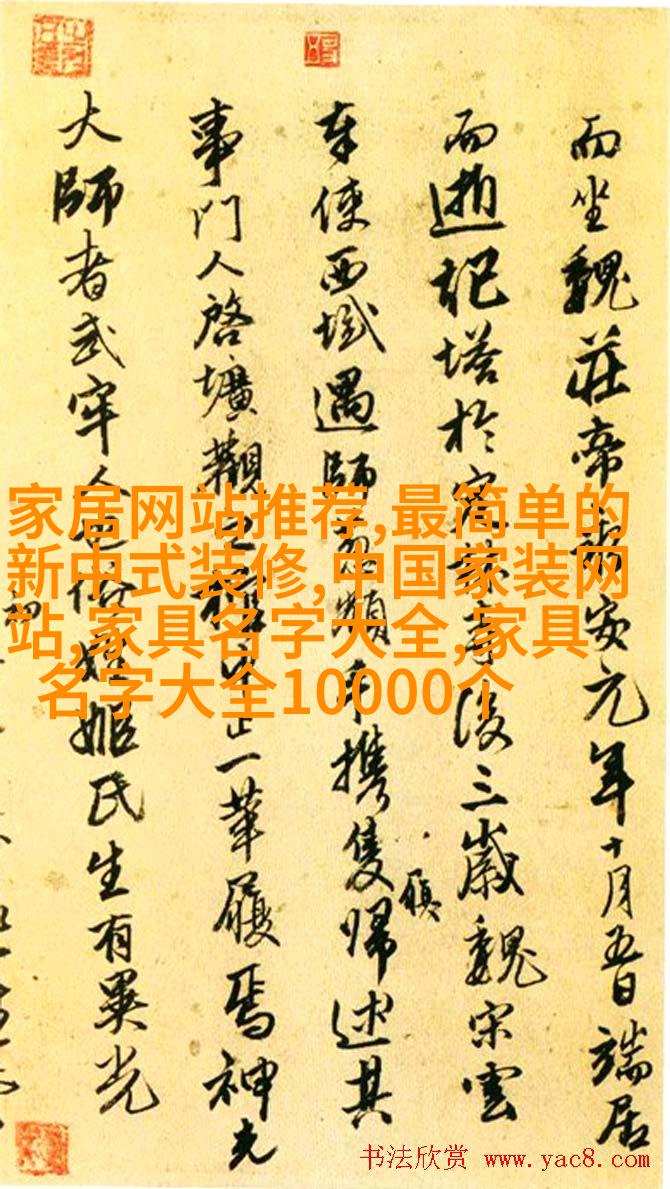 而坐魏莊帝永安元年十月五日端居
而逝記塔於定林寺後三歲魏宋雲
奉使西域遇師葱嶺手携隻歸述其
履
事門人啓壙觀之一革履焉神光
大師者武牢人也俗姓姬氏生有異光
家居网站推荐,最简单的
新中式装修,中国家装网
站,家具名字大全,家具
名字大全10000个
书法欣赏 www.yac8.com